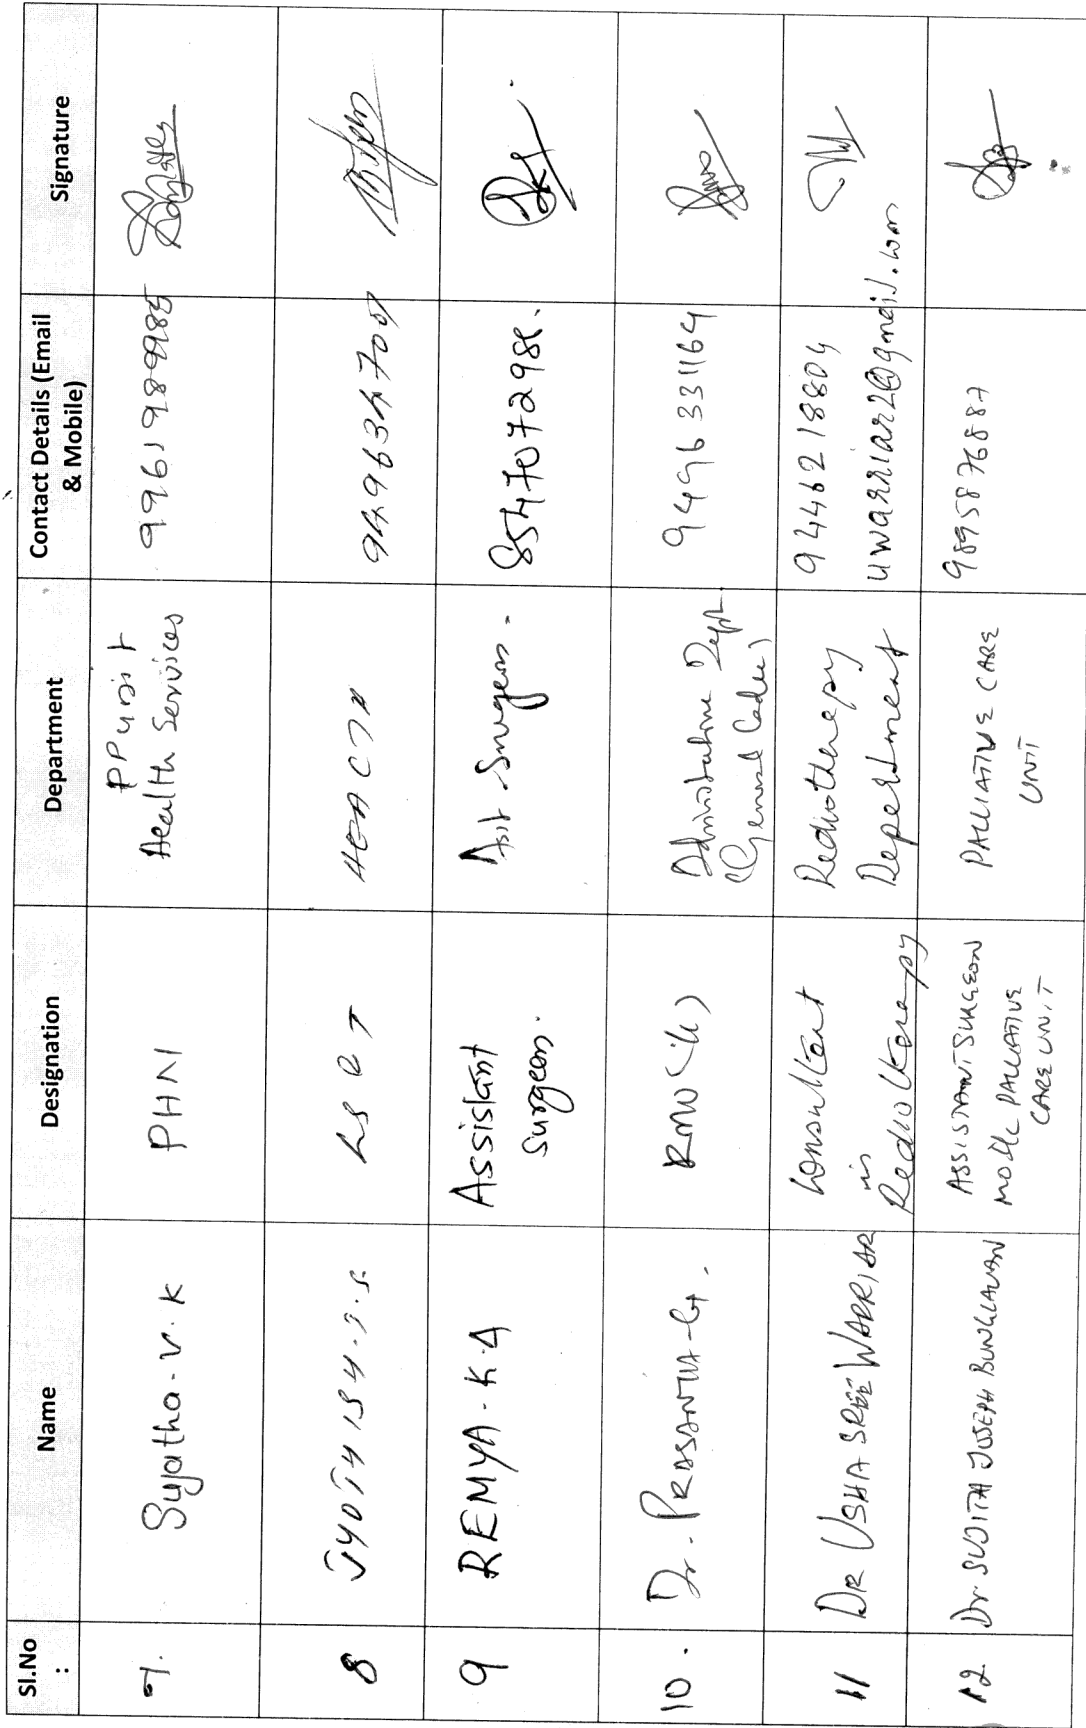 Sl.No : Name Designation Department Contact Details (Email & Mobile) Signature
7. Sujatha. V. K PHN PP unit Health Services 9961989985
8 JYOTHISH. J. S. 9496347051
9 REMYA. K. A Assistant Surgeon. Asst. Surgeon. 8547072988.
10. Dr. PRASANTHA. G. RMO Administative Dept (General Cadre) 9496331164
11 DR USHA SREE WARRIAR Consultant in Radiotherapy Radiotherapy Department 9446218804
uwarriar2@gmail.com
12. Dr. SUDITH JOSEPH ASSISTANT SURGEON PALLIATIVE CARE UNIT PALLIATIVE CARE UNIT 9895876887